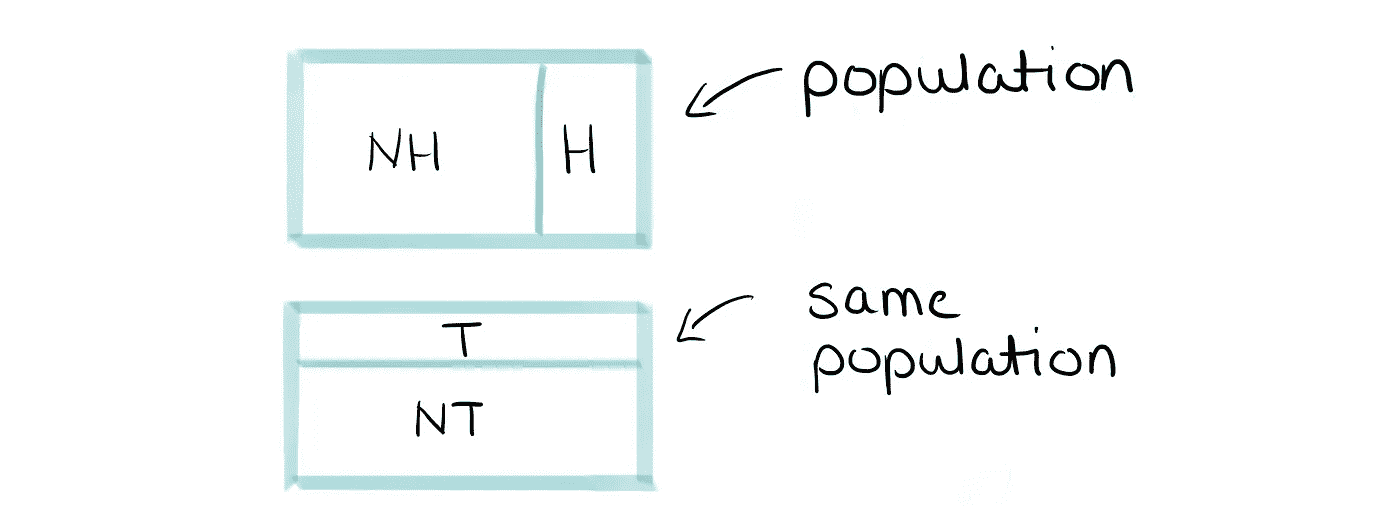 NH H
population
T
NT
same
population